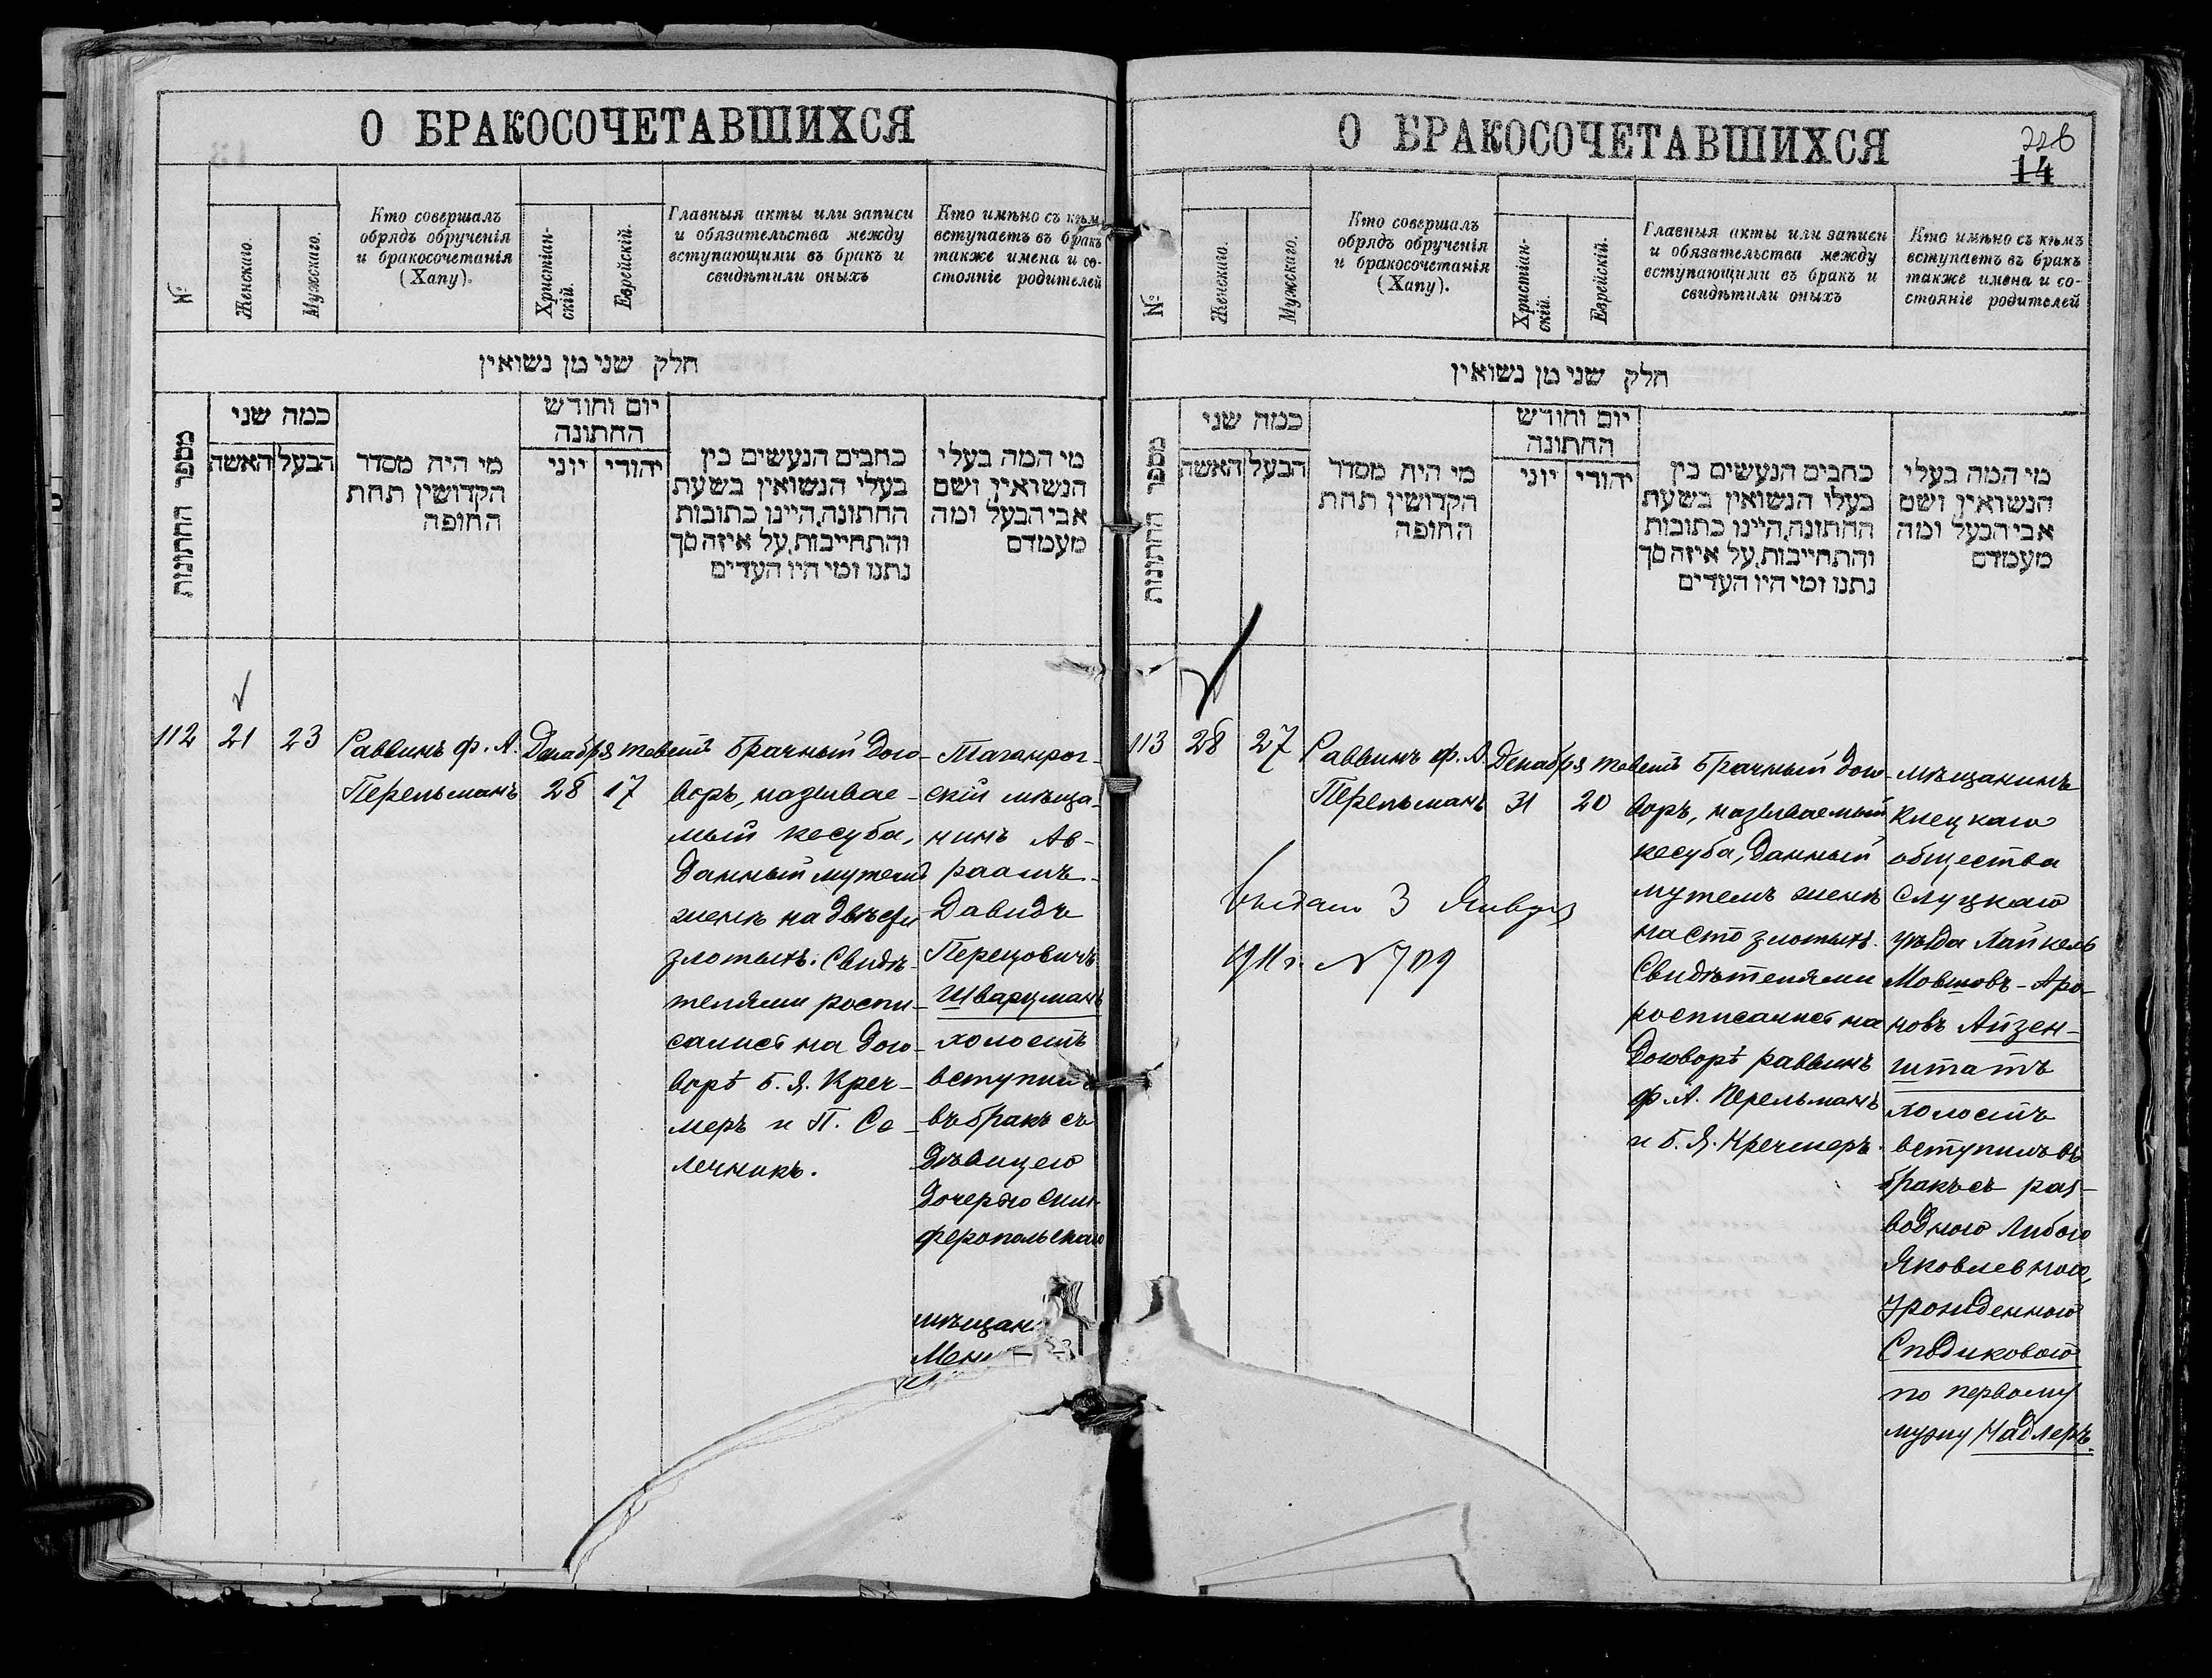 О БРАКОСОЧЕТАВШИХСЯ
№
Женскаго.
Мужскаго.
Кто совершалъ
обрядъ обрученія
и бракосочетанія
(Хапу).
Христіан-
скій.
Еврейскій.
Главныя акты или записи
и обязательства между
вступающими въ бракъ и
свидѣтили оныхъ
Кто имѣно съ кѣмъ
вступаетъ въ бракъ
также имена и со-
стояніе родителей
חלק שני מן נשואין
מספר החתונות
כמה שני
האשה
הבעל
מי היה מסדר
הקדושין תחת
החופה
יום וחודש
החתונה
יוני
יהודי
כתבים הנעשים בין
בעלי הנשואין בשעת
החתונה, היינו כתובות
והתחייבות, על איזה סך
נתנו ומי היו העדים
מי המה בעלי
הנשואין ושם
אבי הבעל ומה
מעמדם
112
21
23
Раввинъ Ф. А.
Перельманъ
Декабря
28
теветъ
17
Брачный дого-
воръ, называе-
мый кесуба,
данный мужемъ
женѣ на двѣсти
злотыхъ. Свидѣ-
телями роспи-
салисъ на дого-
ворѣ Б. Я. Креч-
меръ и П. Со-
лечникъ.
Таганрог-
скій мѣща-
нинъ Ав-
раамъ-
Давидъ
Перецовичъ
Шварцманъ
холостъ
вступилъ
въ бракъ съ
дѣвицею
дочерью Сим-
феропольскаго
мѣщан
Мен
О БРАКОСОЧЕТАВШИХСЯ
226
14
№
Женскаго.
Мужскаго.
Кто совершалъ
обрядъ обрученія
и бракосочетанія
(Хапу).
Христіан-
скій.
Еврейскій.
Главныя акты или записи
и обязательства между
вступающими въ бракъ и
свидѣтили оныхъ
Кто имѣно съ кѣмъ
вступаетъ въ бракъ
также имена и со-
стояніе родителей
חלק שני מן נשואין
מספר החתונות
כמה שני
האשה
הבעל
מי היה מסדר
הקדושין תחת
החופה
יום וחודש
החתונה
יוני
יהודי
כתבים הנעשים בין
בעלי הנשואין בשעת
החתונה, היינו כתובות
והתחייבות, על איזה סך
נתנו ומי היו העדים
מי המה בעלי
הנשואין ושם
אבי הבעל ומה
מעמדם
113
28
27
Раввинъ Ф. А.
Перельманъ
Декабря
31
теветъ
20
Брачный дого-
воръ, называемый
кесуба, данный
мужемъ женѣ
на сто злотыхъ.
Свидѣтелями
росписалисъ на
договорѣ раввинъ
Ф. А. Перельманъ
и Б. Я. Кречмеръ.
мѣщанинъ
Клецкаго
общества
Слуцкаго
уѣзда Хайкель
Мовшовъ-Аро-
новъ Айзен-
штатъ
холостъ
вступилъ въ
бракъ съ раз-
водною Любою
Яковлевною,
урожденною
Сподиковою
по первому
мужу Надлеръ.
Выдано 3 Января
1911 г. № 709